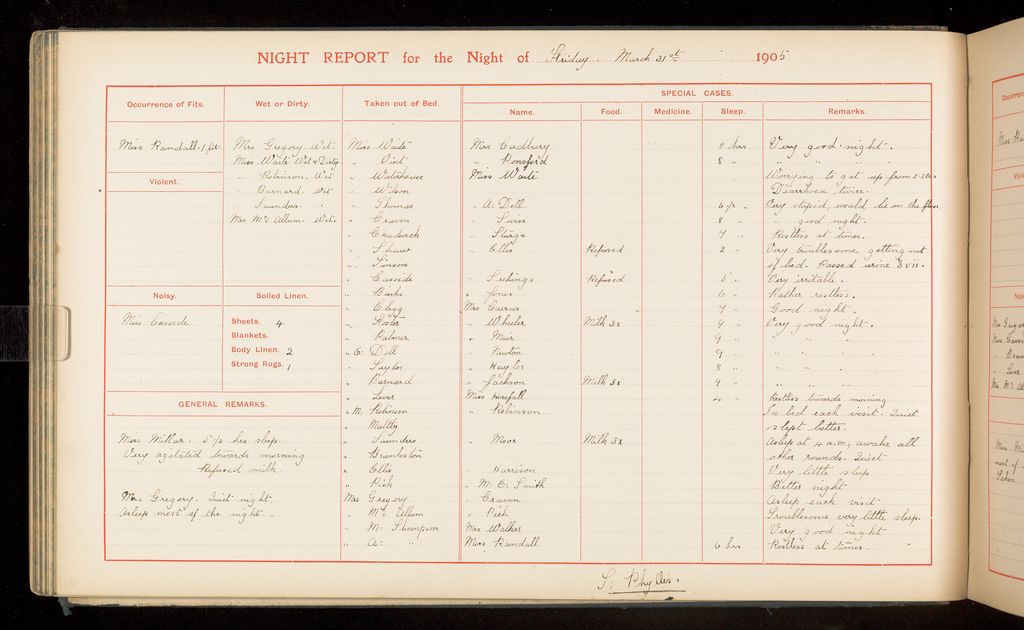 NIGHT REPORT for the Night of Friday. March 31st 1905
Occurrence of Fits.
Miss Randall. 1 fit.
Violent.
Noisy.
Miss Casside
Wet or Dirty.
Mrs Gregory Wet.
Miss Waite Wet & Dirty
" Robinson. Wet
" Barnard. Wet
" Saunders. "
Mrs McAllum. Wet.
Soiled Linen.
Sheets. 4
Blankets.
Body Linen. 2
Strong Rugs. 1
GENERAL REMARKS.
Miss Millar. 5 1/2 hrs sleep.
Very agitated towards morning
Refused milk.
Mrs Gregory. Quiet night.
Asleep most of the night.
Taken out of Bed.
Miss Waite
" Vint
" Waterhouse
" Wilson
" Thomas
" Craven
" Chadwick
" Shaw
" Simson
" Casside
" Binks
" Clegg
" Foster
" Palmer
" E: Dell
" Taylor
" Barnard
" Lever
" M: Robinson
" Maltby
" Saunders
" Brankston
" Ellis
" Pick
Mrs Gregory
" McAllum
" M: Thompson
" A: "
SPECIAL CASES.
Name. Food. Medicine. Sleep. Remarks.
Mrs Cadbury 8 hrs Very good night.
" Ponsford 8 " " " "
Miss Waite Worrying to get up from 3-30am.
Diarrhoea twice.
" A: Dell 6 1/2 " Very stupid, would lie on the floor
" Swiss 8 " " good night.
" Sturge 7 " Restless at times.
" Ellis Refused 2 " Very troublesome getting out
of bed. Passed urine ℥vii.
" Seekings Refused 5 " Very irritable.
" Jones 6 " Rather restless.
Mrs Cairns 7 " Good night.
" Wheeler Milk 3x 9 " Very good night.
" Muir 9 " " " "
" Newton 9 " " " "
" Haylor 8 " " " "
" Jackson Milk 3x 9 " " " "
Miss Horsfall 4 " Restless towards morning
" Robinson. In bed each visit. Quiet
slept better.
" Moor Milk 3x Asleep at 4 a.m, awake all
other rounds. Quiet
" Harrison Very little sleep
" M: E: Smith Better night
" Craven Asleep each visit
" Pick Troublesome, very little sleep.
Mrs Walker Very good night
Miss Randall 6 hrs Restless at times.
S: Phyllis.